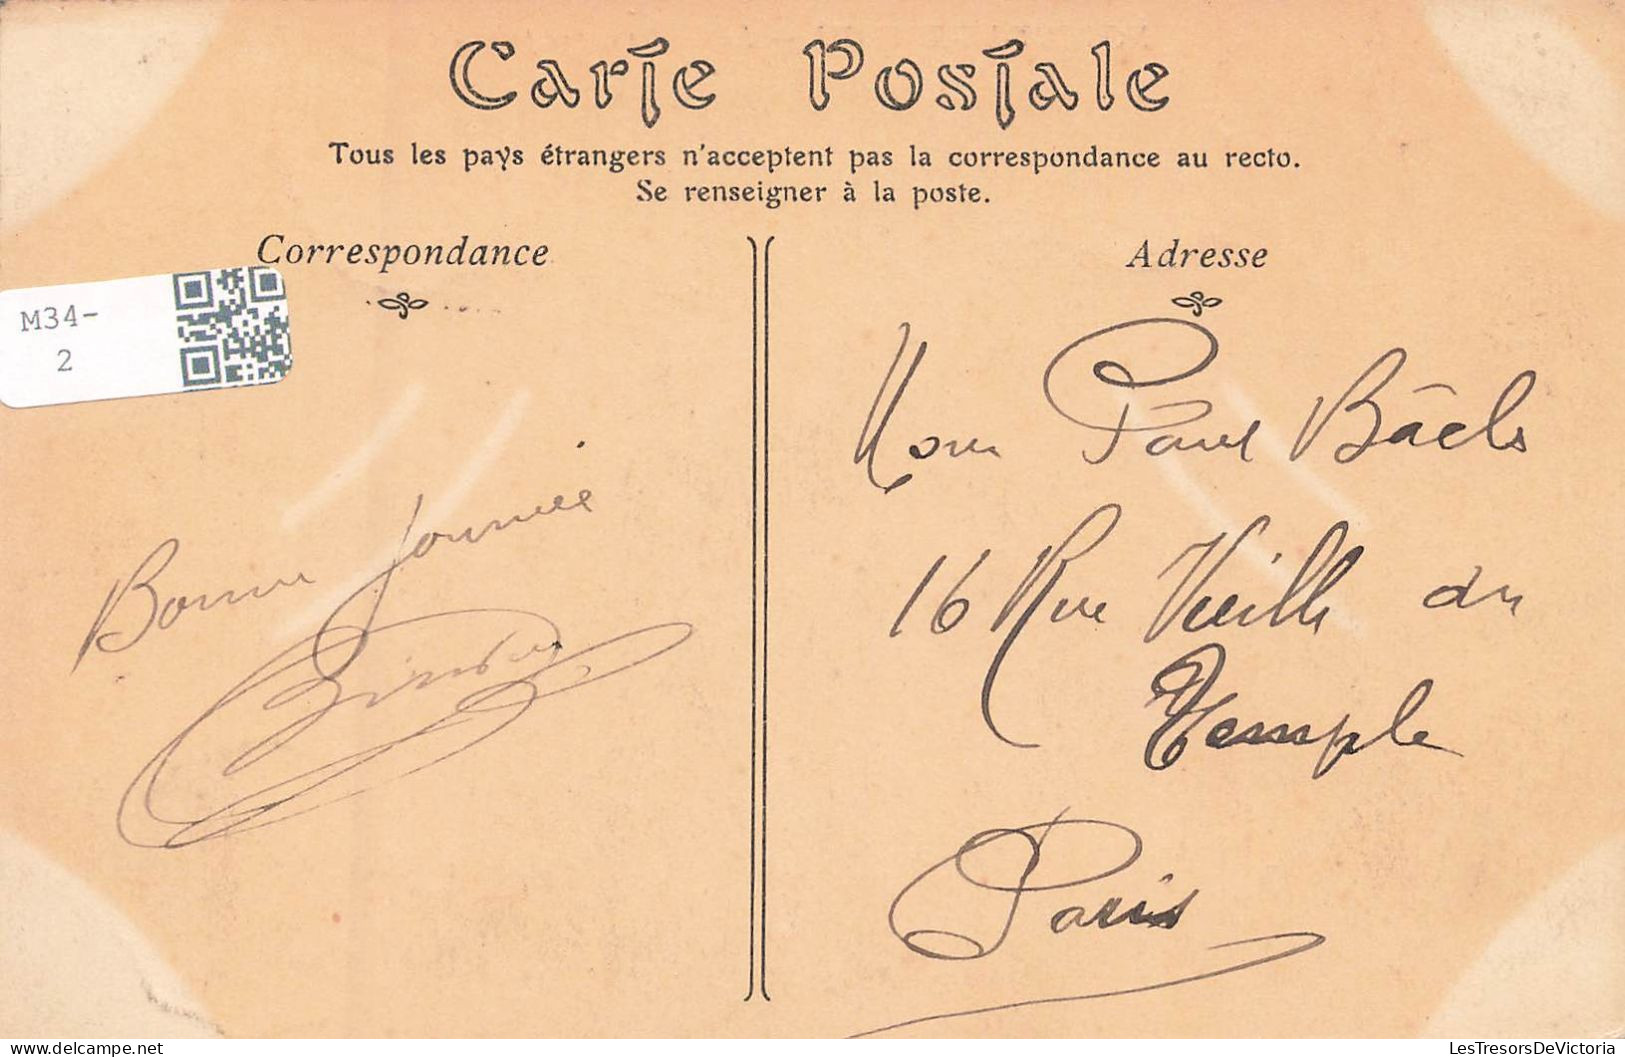 Carte Postale
Tous les pays étrangers n'acceptent pas la correspondance au recto.
Se renseigner à la poste.
Correspondance
Adresse
M34-
2
Paul Bāels
Bonne journée
16 Rue Vieille du
Temple
Paris
LesTresorsDeVictoria
delcampe.net